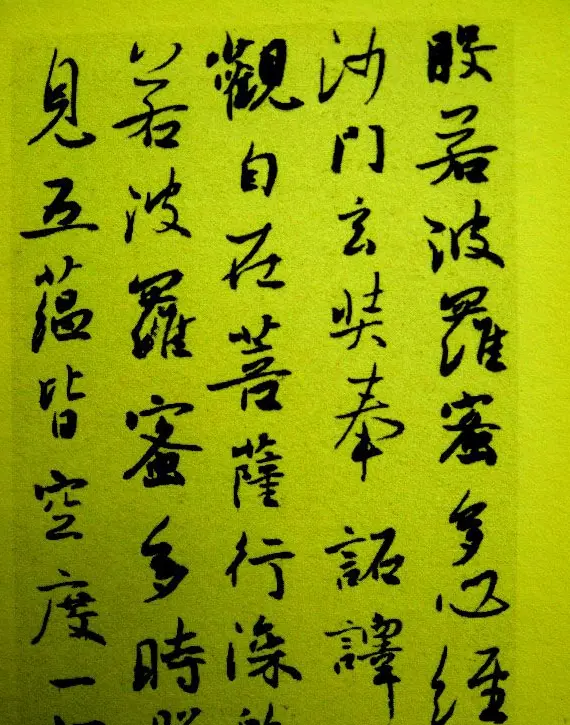 般若波羅蜜多心經
沙門玄奘奉詔譯
觀自在菩薩行深般
若波羅蜜多時照
見五蘊皆空度一切